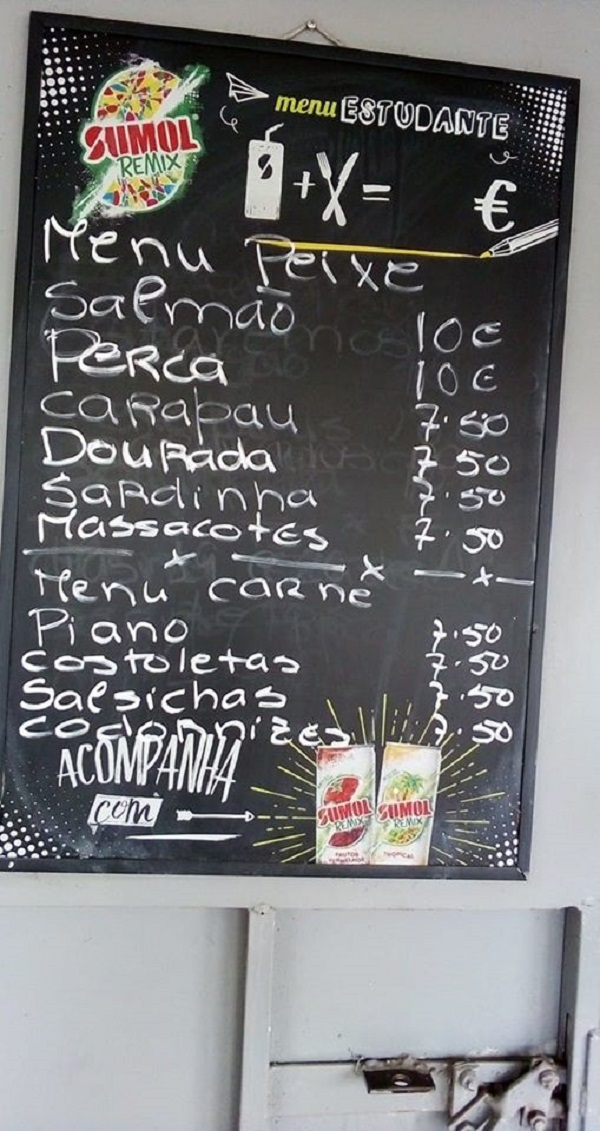 SUMOL
REMIX
menu ESTUDANTE
+ = €
Menu Peixe
Salmão 10€
Perca 10€
carapau 7.50
Dourada 7.50
Sardinha 7.50
Massacotes 7.50
x x x
Menu carne
Piano 7.50
costoletas 7.50
Salsichas 7.50
codornizes 7.50
ACOMPANHA
com
SUMOL SUMOL
REMIX REMIX
TROPICAL